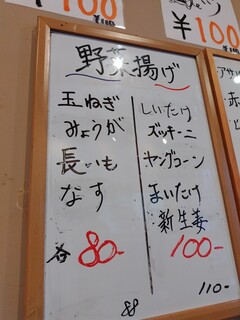 ¥100
¥100
野菜揚げ
玉ねぎ
みょうが
長いも
なす
各 80-
しいたけ
ズッキーニ
ヤングコーン
まいたけ
新生姜
100-
88
110-
アサ
赤